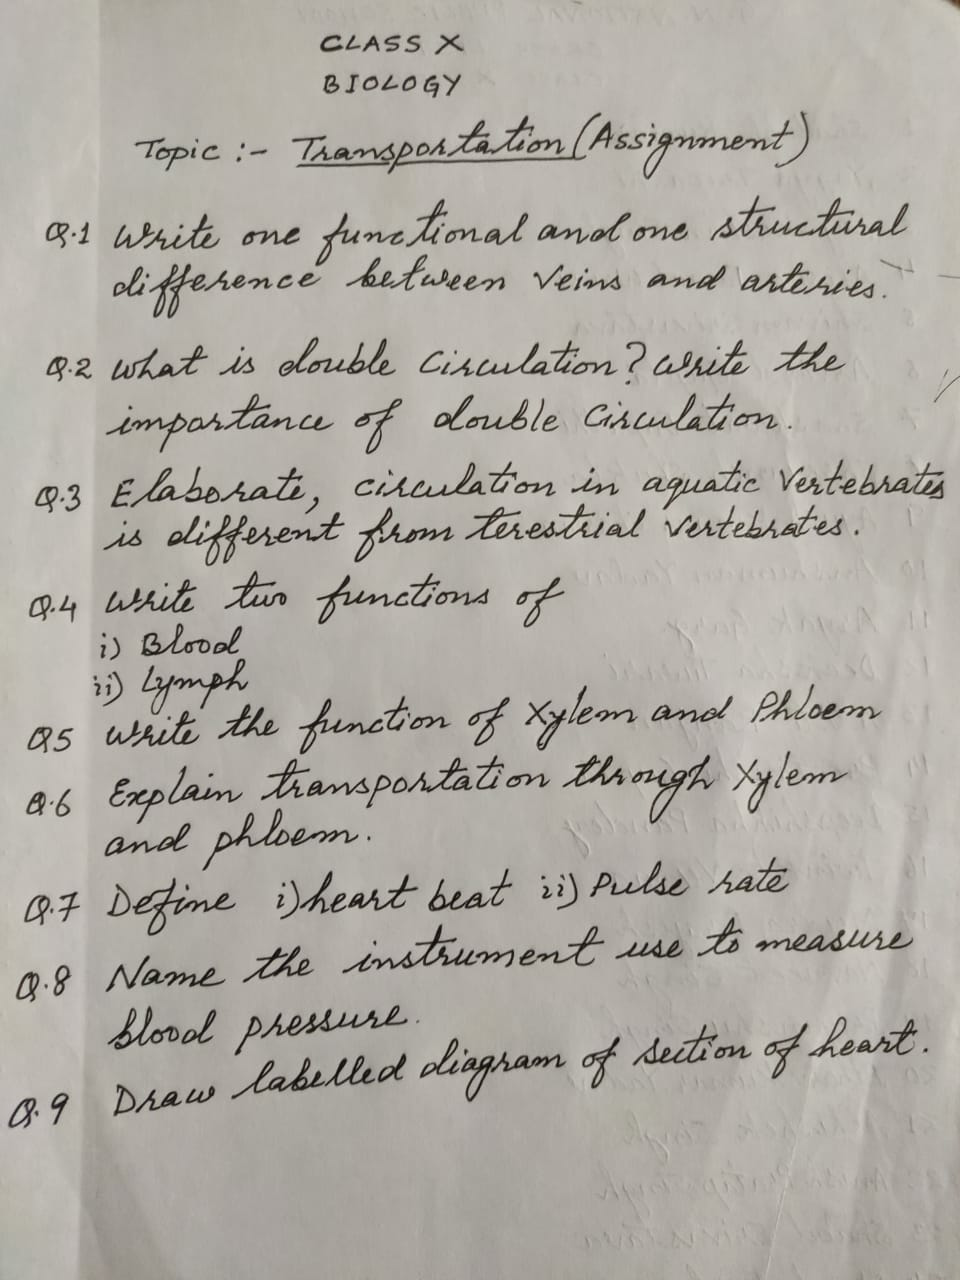 CLASS X
BIOLOGY
Topic :- Transportation (Assignment)
Q.1 Write one functional and one structural
difference between Veins and arteries.
Q.2 What is double Circulation? Write the
importance of double Circulation.
Q.3 Elaborate, circulation in aquatic Vertebrates
is different from terestrial Vertebrates.
Q.4 Write two functions of
i) Blood
ii) Lymph
Q5 Write the function of Xylem and Phloem
Q.6 Explain transportation through Xylem
and phloem.
Q.7 Define i) heart beat ii) Pulse rate
Q.8 Name the instrument use to measure
blood pressure.
Q.9 Draw labelled diagram of section of heart.